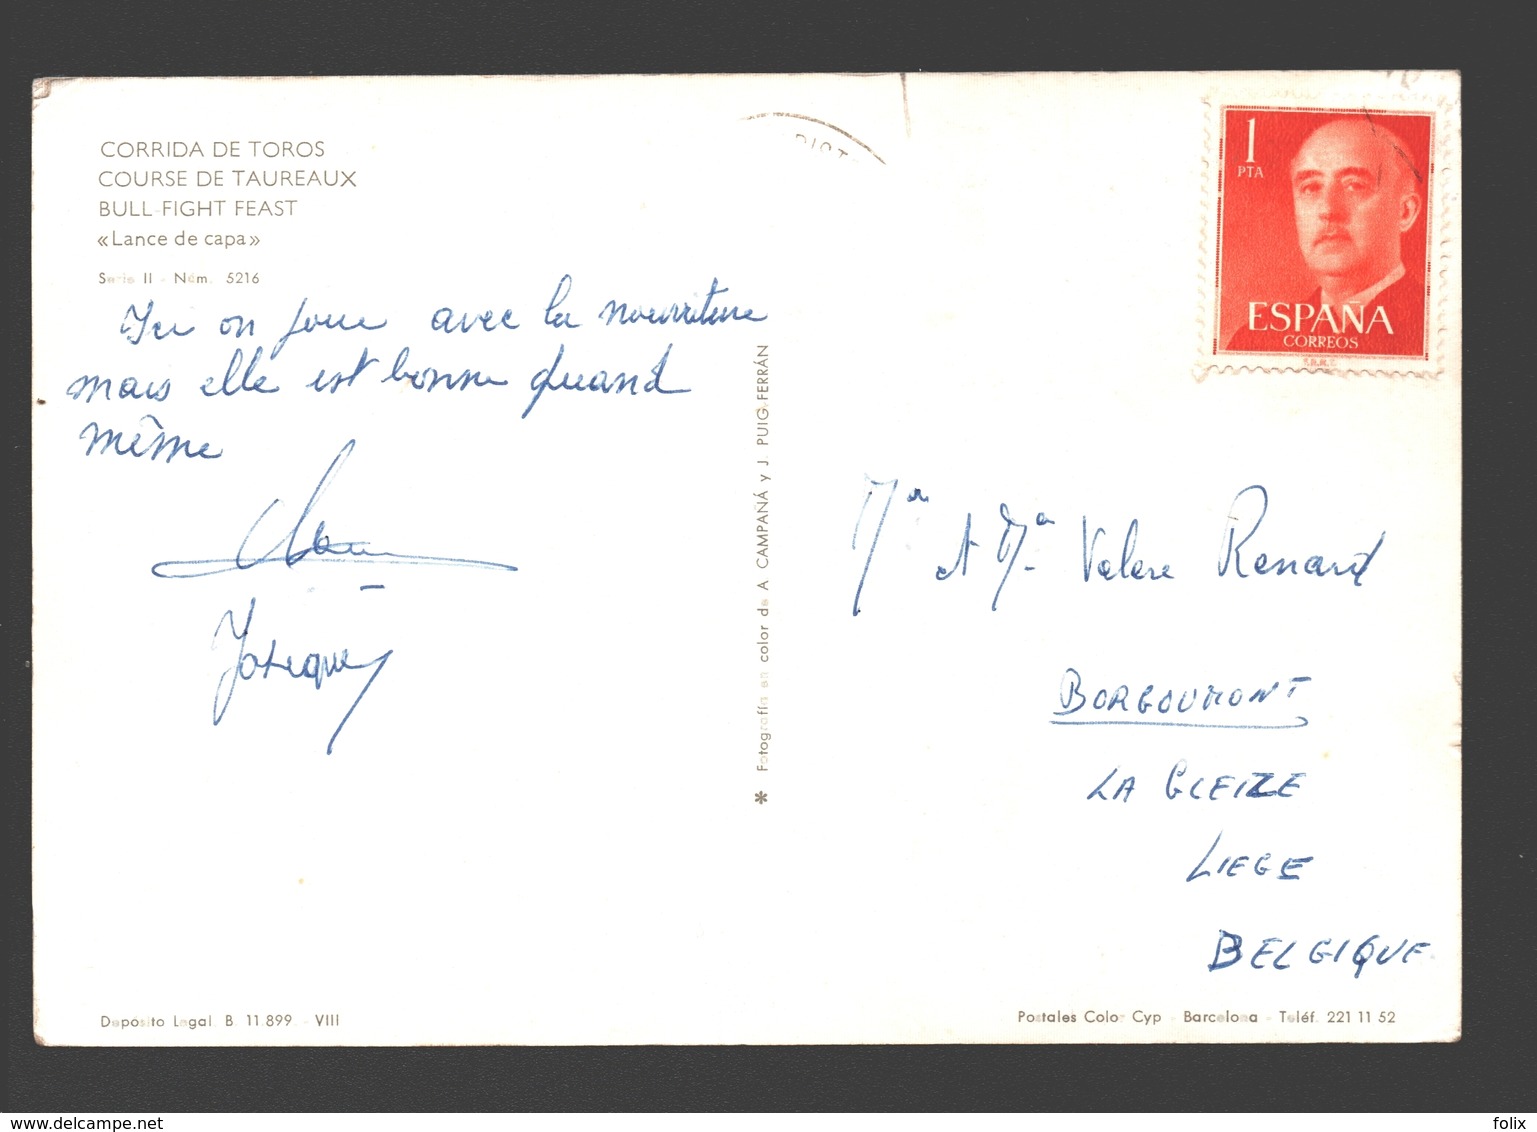 CORRIDA DE TOROS
COURSE DE TAUREAUX
BULL-FIGHT FEAST
«Lance de capa»
Serie II - Núm. 5216
Ici on joue avec la nourriture
mais elle est bonne quand
même
Fotografía en color de A. CAMPAÑÁ y J. PUIG FERRÁN
Depósito Legal B. 11.899 - VIII
1
PTA
ESPAÑA
CORREOS
F.N.M.T.
Mr et Me Valere Renard
BORGOUMONT
LA GLEIZE
LIEGE
BELGIQUE
Postales Color Cyp - Barcelona - Teléf. 221 11 52
www.delcampe.net
folix